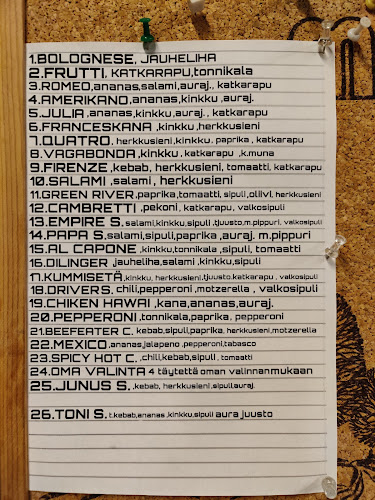 1.BOLOGNESE, JAUHELIHA
2.FRUTTI, KATKARAPU,tonnikala
3.ROMEO,ananas,salami,auraj., katkarapu
4.AMERIKANO,ananas,kinkku ,auraj.
5.JULIA,ananas,kinkku,auraj., katkarapu
6.FRANCESKANA ,kinkku,herkkusieni
7.QUATRO, herkkusieni,kinkku, paprika , katkarapu
8.VAGABONDA,kinkku , katkarapu ,k.muna
9.FIRENZE,kebab, herkkusieni, tomaatti, katkarapu
10.SALAMI ,salami, herkkusieni
11.GREEN RIVER,paprika,tomaatti, sipuli,oliivi, herkkusieni
12.CAMBRETTI ,pekoni, katkarapu, valkosipuli
13.EMPIRE S,salami,kinkku,sipuli ,tjuusto,m.pippuri, valkosipuli
14.PAPA S,salami,sipuli,paprika ,auraj, m.pippuri
15.AL CAPONE ,kinkku,tonnikala ,sipuli, tomaatti
16.DILINGER ,jauheliha,salami ,kinkku,sipuli
17.KUMMISETÄ,kinkku, herkkusieni,tjuusto,katkarapu , valkosipuli
18.DRIVERS, chili,pepperoni ,motzerella , valkosipuli
19.CHIKEN HAWAI ,kana,ananas,auraj.
20.PEPPERONI,tonnikala,paprika, pepperoni
21.BEEFEATER C, kebab,sipuli,paprika, herkkusieni,motzerella
22.MEXICO,ananas,jalapeno ,pepperoni,tabasco
23.SPICY HOT C. ,chili,kebab,sipuli , tomaatti
24.OMA VALINTA 4 täytettä oman valinnanmukaan
25.JUNUS S, ,kebab, herkkusieni,sipuli,auraj.
26.TONI S. t.kebab,ananas ,kinkku,sipuli aura juusto